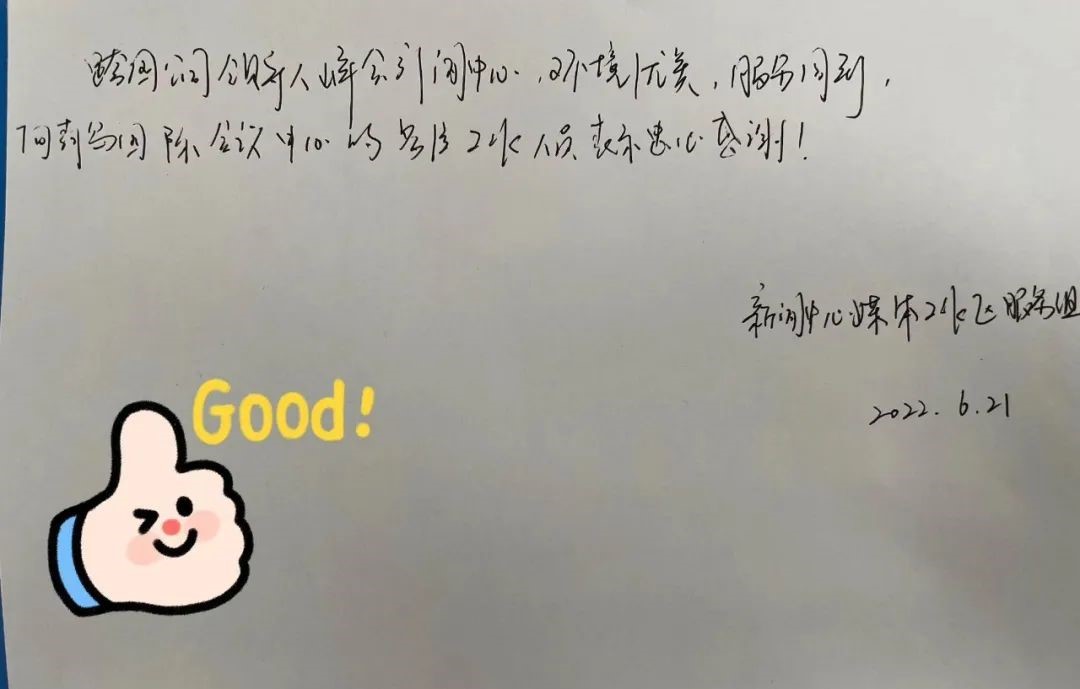 跨国公司领导人峰会新闻中心,环境优美,服务周到,
向青岛国际会议中心的各位工作人员表示衷心感谢!
新闻中心媒体工作区服务组
2022.6.21
Good!